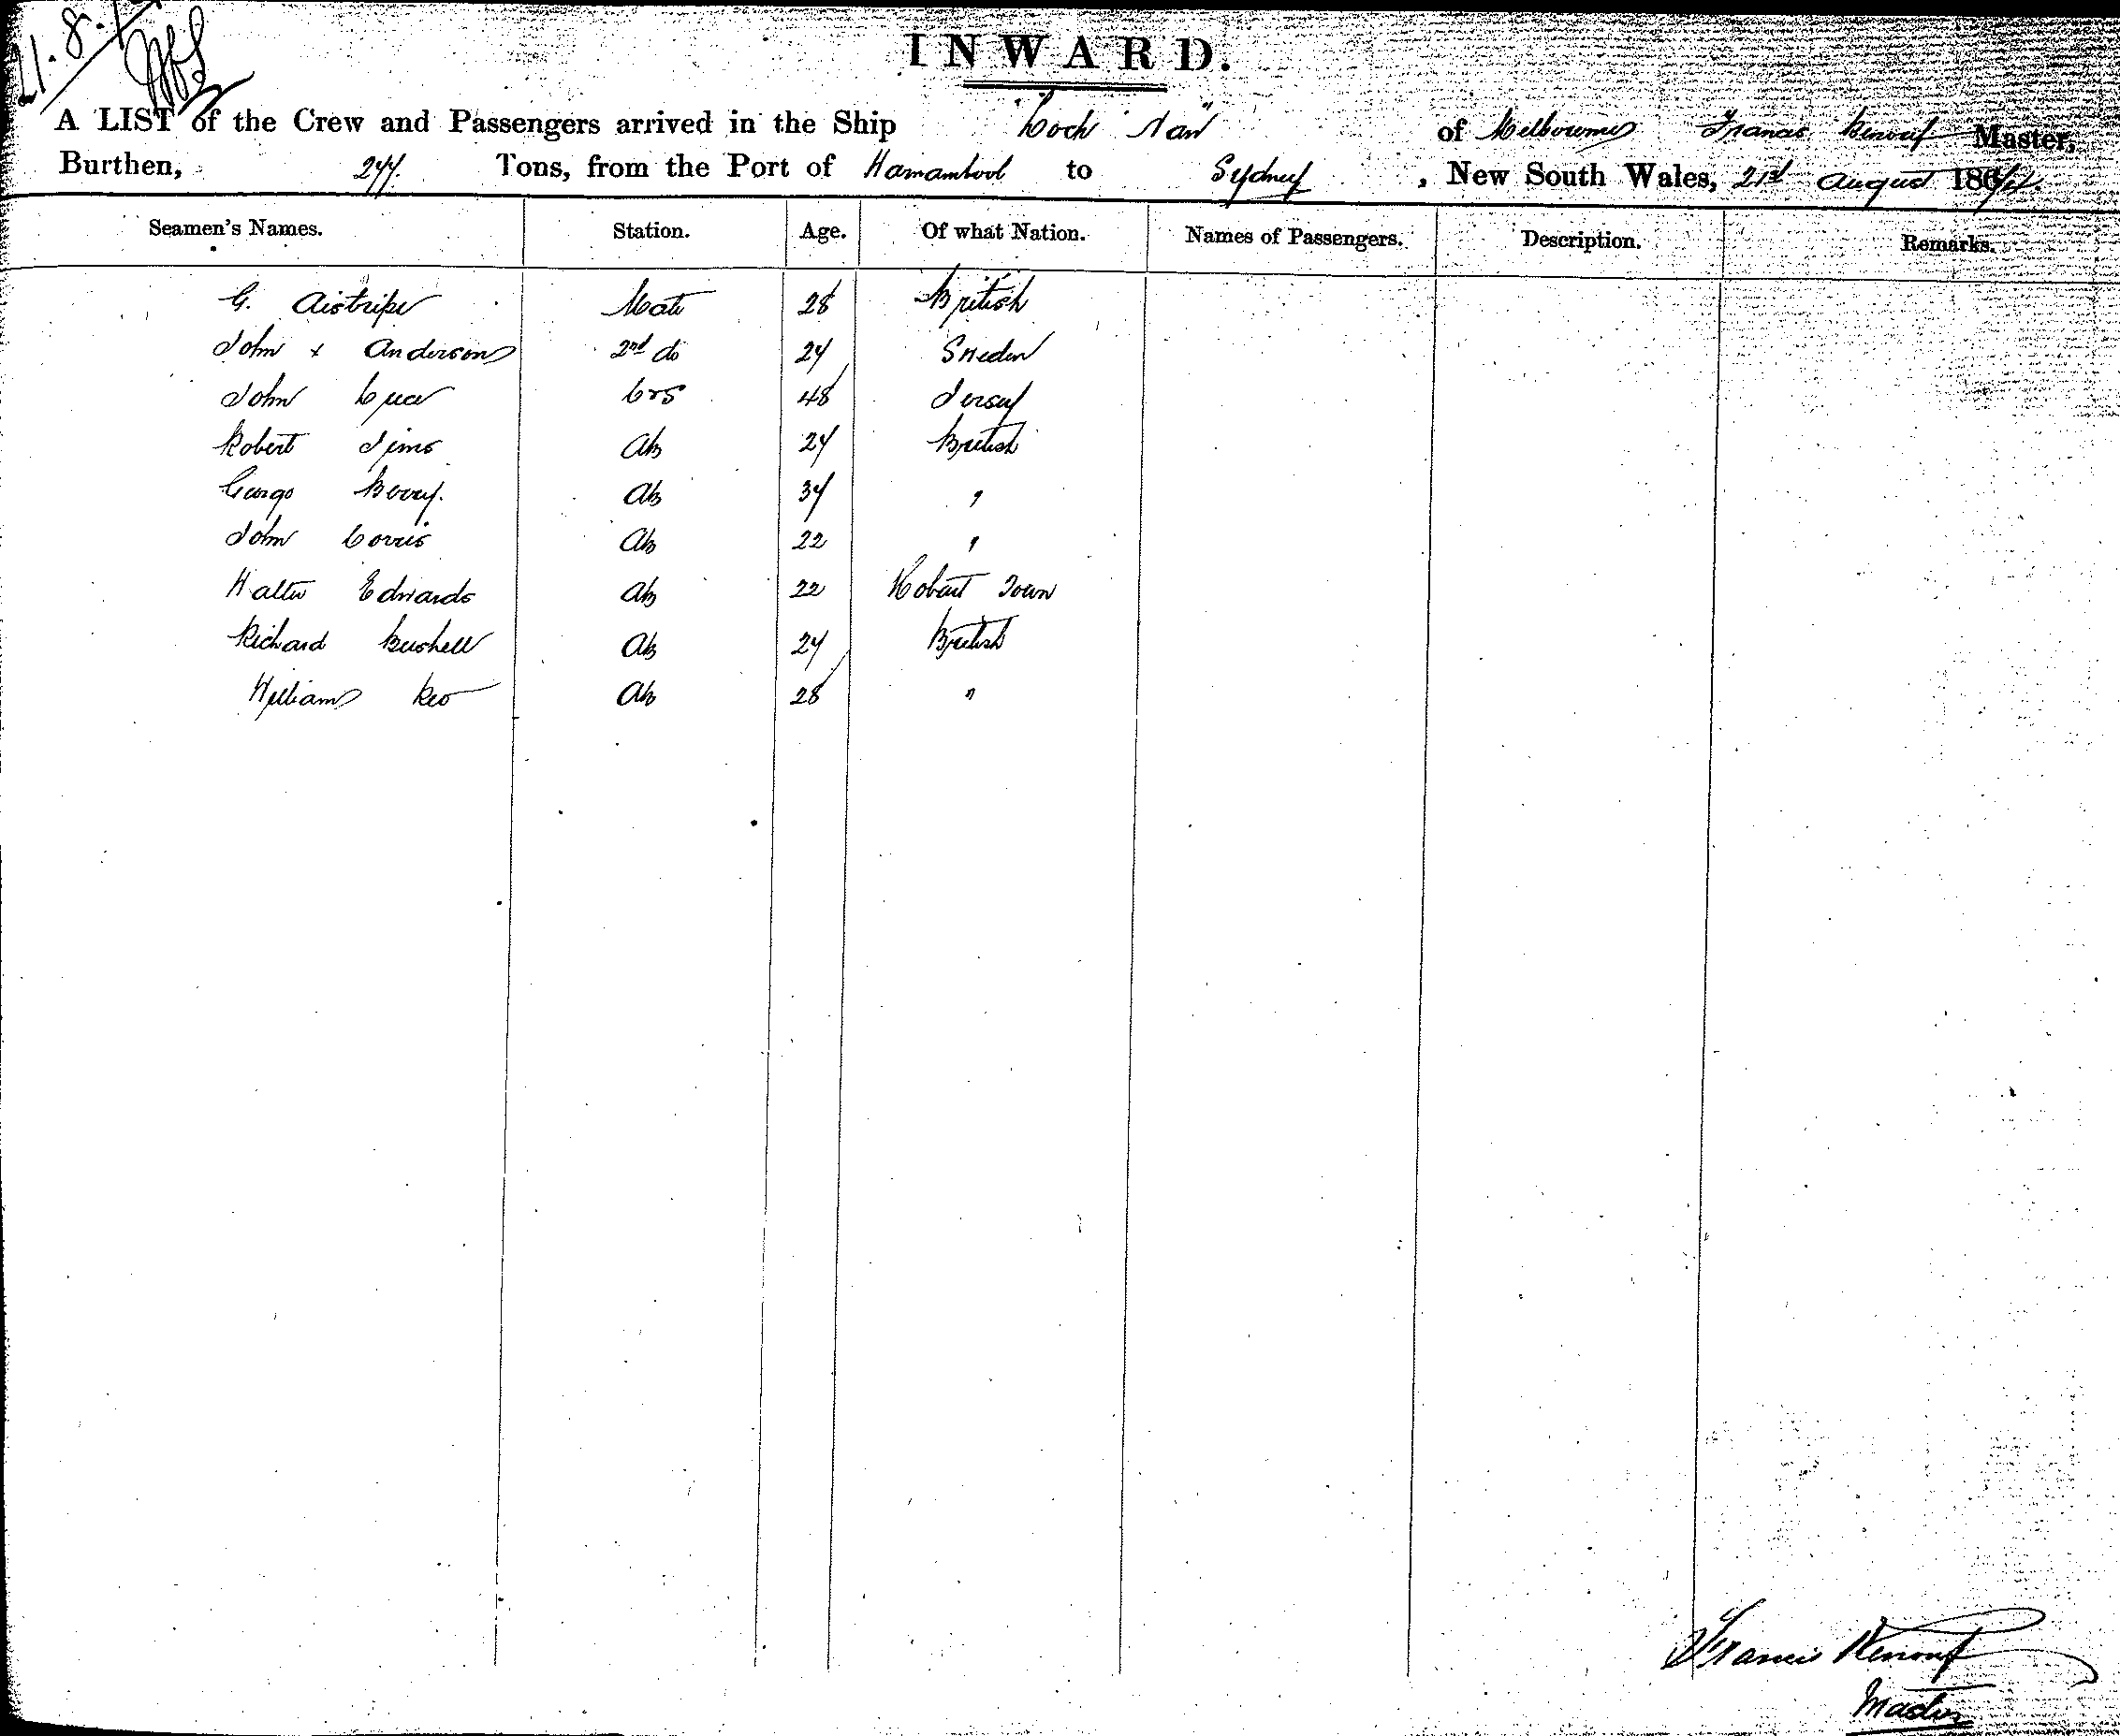 21.8.
INWARD.
A LIST of the Crew and Passengers arrived in the Ship "Loch Naw" of Melbourne Francis Renouf Master,
Burthen, 244. Tons, from the Port of Warnambool to Sydney, New South Wales, 21st August 186
Seamen's Names. Station. Age. Of what Nation. Names of Passengers. Description. Remarks.
G. Mate 28 British
John + Anderson 2nd do 24 Sweden
John 48 Jersey
Robert Sims Ab 24 British
George Berry. Ab 34 "
John Corris Ab 22 "
Walter Edwards Ab 22 Hobart Town
Richard Bushell Ab 24 British
William Ab 28 "
Francis Renouf
Master